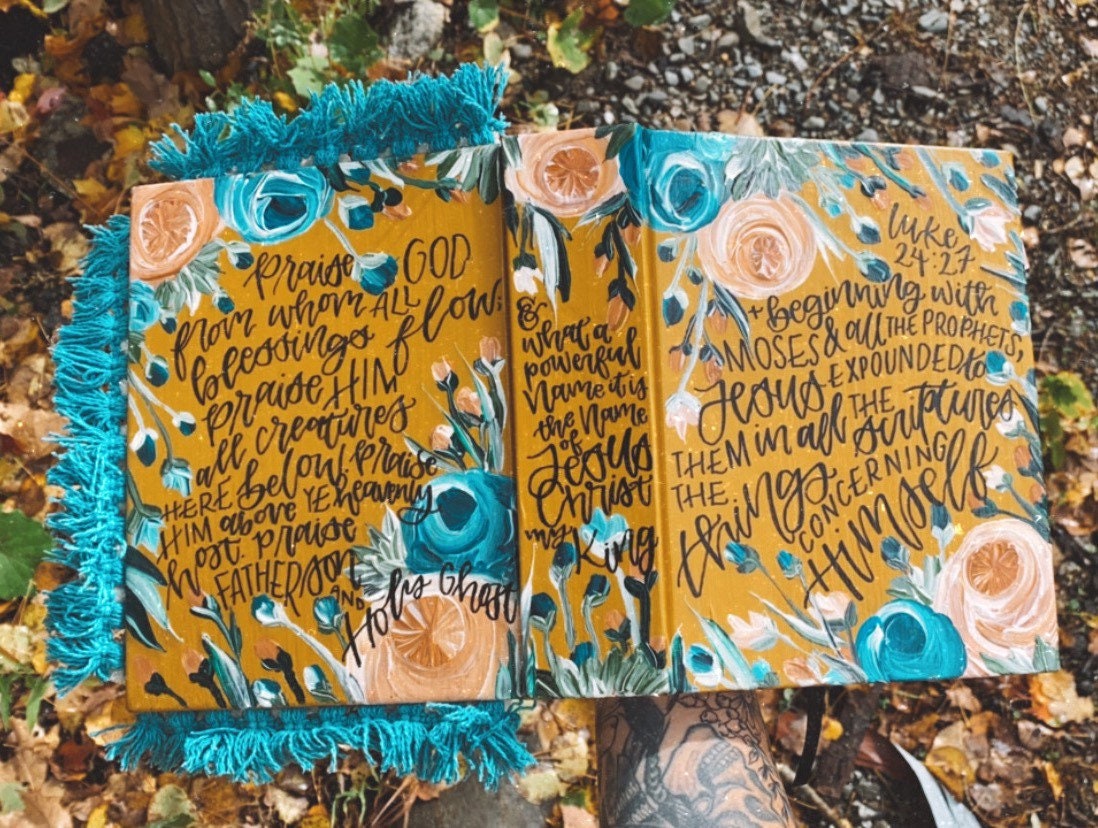 Praise GOD
from whom ALL
blessings flow;
Praise HIM
all creatures
HERE below. Praise
HIM above YE heavenly
host. Praise
FATHER, Son
AND
Holy Ghost
&
what a
powerful
Name it is
the Name
of
Jesus
Christ
my King
Luke
24:27
+ Beginning with
MOSES & all THE PROPHETS,
Jesus EXPOUNDED to
THEM in all THE
THE scriptures
things
CONCERNING
Himself